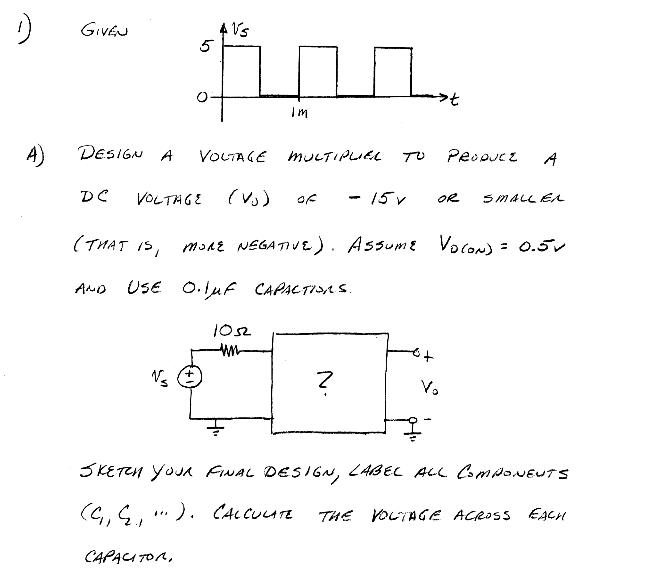 1) GIVEN
Vs
5
0
t
1m
A) DESIGN A VOLTAGE MULTIPLIER TO PRODUCE A
DC VOLTAGE (Vo) OF -15V OR SMALLER
(THAT IS, MORE NEGATIVE). ASSUME VD(ON) = 0.5V
AND USE 0.1μF CAPACTIORS.
10Ω
Vs
+
-
?
+
Vo
-
SKETCH YOUR FINAL DESIGN, LABEL ALL COMPONENTS
(C1, C2, ...). CALCULATE THE VOLTAGE ACROSS EACH
CAPACITOR.